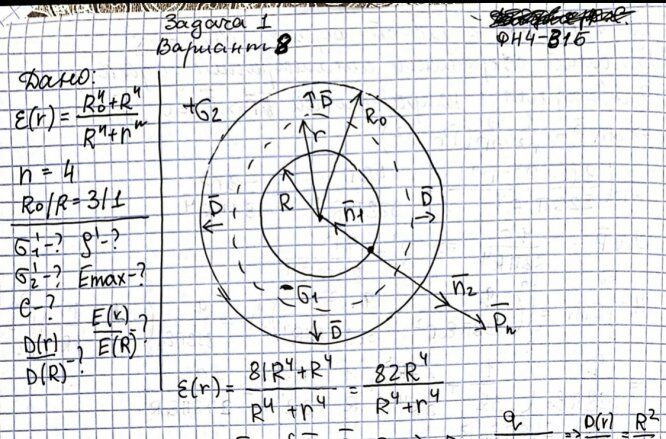 Задача 1
Вариант 8
ФН4-31Б
Дано:
ε(r) = (R₀ⁿ+Rⁿ)/(Rⁿ+rⁿ)
n = 4
R₀/R = 3/1
σ₁'-? ρ'-?
σ₂'-? Emax-?
C-?
D(r)/D(R)-? E(r)/E(R)-?
+σ₂
D̄
R₀
r
D̄
R
n̄₁
D̄
-σ₁
n̄₂
P̄n
D̄
ε(r) = (81R⁴+R⁴)/(R⁴+r⁴) = 82R⁴/(R⁴+r⁴)
q
D(r) = R²